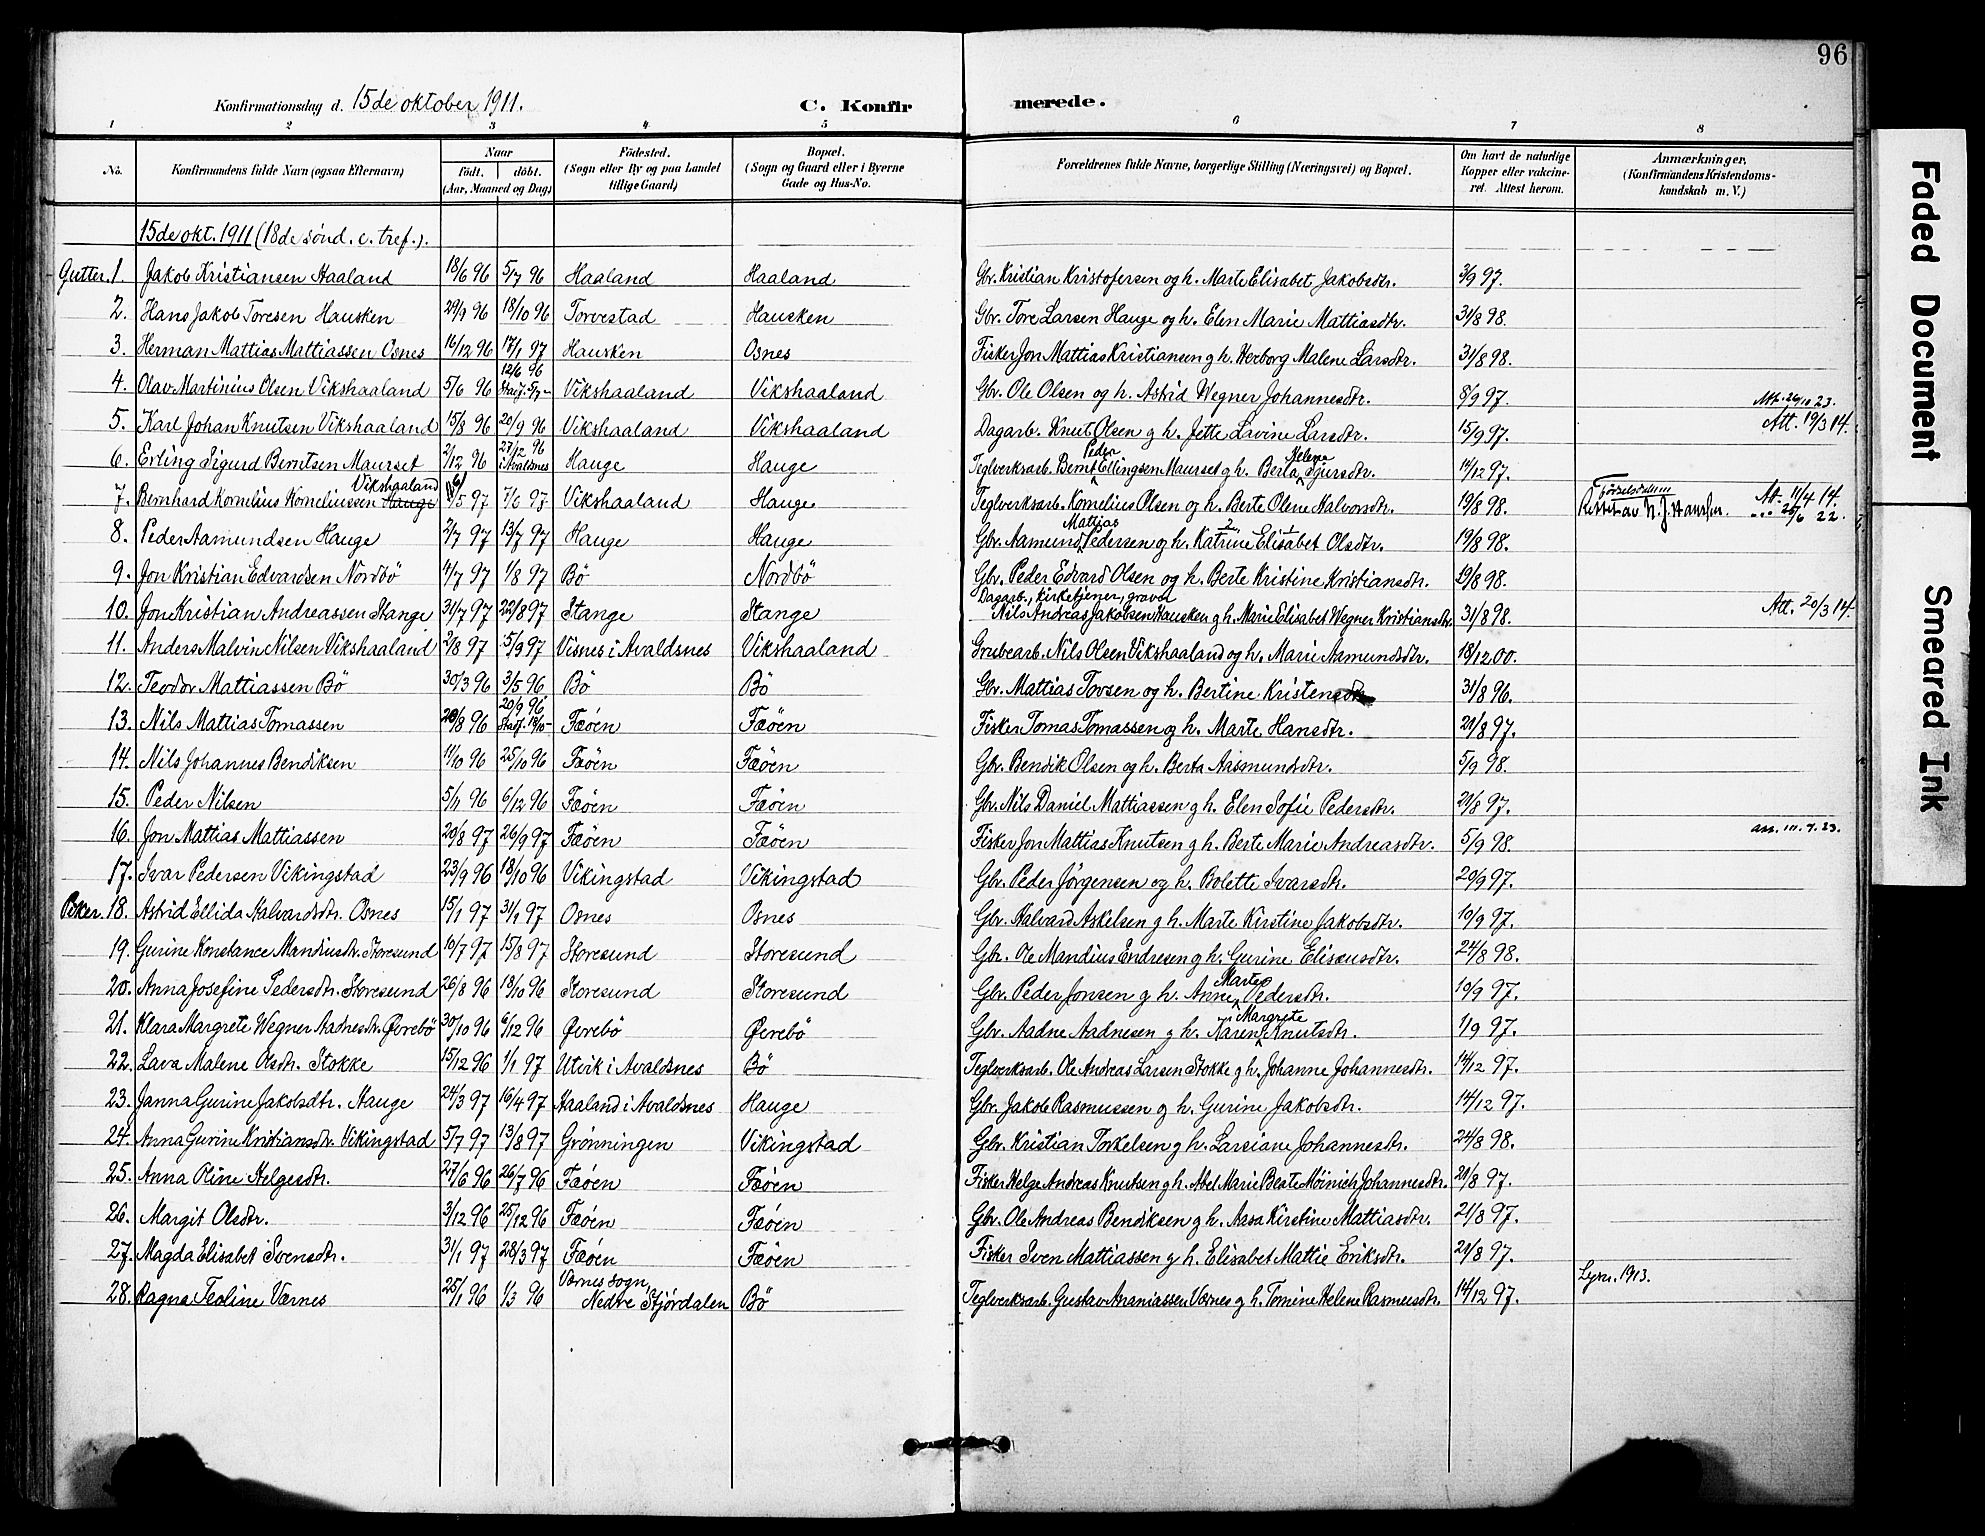 96
Konfirmationsdag d. 15de oktober 1911. C. Konfirmerede.
1 2 3 4 5 6 7 8
No. Konfirmandens fulde Navn (ogsaa Efternavn) Naar födt. döbt. (Aar, Maaned og Dag) Födested. (Sogn eller By og paa Landet tillige Gaard) Bopæl. (Sogn og Gaard eller i Byerne Gade og Hus-No. Forældrenes fulde Navne, borgerlige Stilling (Næringsvei) og Bopæl. Om havt de naturlige Kopper eller vaccineret. Attest herom. Anmærkninger. (Konfirmandens Kristendomskundskab m. V.)
15de okt. 1911 (18de sönd. e. tref.).
Gutter. 1. Jakob Kristiansen Haaland 18/6 96 5/7 96 Haaland Haaland Gbr. Kristian Kristofersen og h. Marte Elisabet Jakobsdtr. 3/9 97.
2. Hans Jakob Toresen Hausken 29/9 96 18/10 96 Torvestad Hausken Gbr. Tore Larsen Hauge og h. Elen Marie Mattiasdtr. 31/8 98.
3. Herman Mattias Mattiassen Osnes 16/12 96 17/1 97 Hausken Osnes Fisker Jon Mattias Kristiansen g h. Herborg Malene Larsdtr. 31/8 98.
4. Olav Martinius Olsen Vikshaaland 5/6 96 12/6 96 Stadf. 5/7 - Vikshaaland Vikshaaland Gbr. Ole Olsen og h. Astrid Wegner Johannesdtr. 8/9 97.
5. Karl Johan Knutsen Vikshaaland 15/8 96 20/9 96 Vikshaaland Vikshaaland Dagarb. Knut Olsen g h. Jette Lavine Larsdtr. 15/9 97. Att. 19/3 14.
6. Erling Sigurd Berntsen Maurset 2/12 96 27/12 96 i Avaldsnes Hauge Hauge Teglverksarb. Bernt Peder Ellingsen Maurset g h. Berta Helena Sjursdtr. 14/12 97.
7. Bernhard Kornelius Korneliussen Hauge Vikshaaland /5 97 7/6 97 Vikshaaland Hauge Teglverksarb. Kornelius Olsen og h. Berte Olene Halvorsdtr. 19/8 98. Födselsdatum Rettet av Att. 11/4 14.
8. Peder Aamundsen Hauge 2/7 97 13/7 97 Hauge Hauge Gbr. Aamund Mattias Pedersen og h. Katrine Elisabet Olsdtr. 19/8 98. 26/6 22.
9. Jon Kristian Edvardsen Nordbö 4/7 97 1/8 97 Bö Nordbö Gbr. Peder Edvard Olsen og h. Berte Kristine Kristiansdtr. 19/8 98.
10. Jon Kristian Andreassen Stange 31/7 97 22/8 97 Stange Stange Dagarb., kirketjener, graver Nils Andreas Jakobsen Hausken g h. Marie Elisabet Wegner Kristiansdtr. 31/8 98. Att. 20/3 14.
11. Anders Malvin Nilsen Vikshaaland 2/8 97 5/9 97 Visnes i Avaldsnes Vikshaaland Grubearb. Nils Olsen Vikshaaland og h. Marie Aamundsdtr. 18/12 00.
12. Teodor Mattiassen Bö 30/3 96 3/5 96 Bö Bö Gbr. Mattias Tovsen og h. Bertine Kristensdtr. 31/8 96.
13. Nils Mattias Tomassen 20/8 96 20/9 96 Stadf. 18/10 - Fæöen Fæöen Fisker Tomas Tomassen og h. Marte Hansdtr. 21/8 97.
14. Nils Johannes Bendiksen 11/10 96 25/10 96 Fæöen Fæöen Gbr. Bendik Olsen og h. Berta Aasmundsdtr. 5/9 98.
15. Peder Nilsen 5/11 96 6/12 96 Fæöen Fæöen Gbr. Nils Daniel Mattiassen g h. Elen Sofie Pedersdtr. 21/8 97.
16. Jon Mattias Mattiassen 20/8 97 26/9 97 Fæöen Fæöen Fisker Jon Mattias Knutsen g h. Berte Marie Andreasdtr. 5/9 98.
17. Ivar Pedersen Vikingstad 23/9 96 18/10 96 Vikingstad Vikingstad Gbr. Peder Jörgensen og h. Bolette Ivarsdtr. 20/9 97.
Piker. 18. Astrid Ellida Halvardsdtr. Osnes 15/1 97 31/1 97 Osnes Osnes Gbr. Halvard Askelsen g h. Marte Kirstine Jakobsdtr. 10/9 97.
19. Gurine Konstance Mandiusdtr. Storesund 10/7 97 15/8 97 Storesund Storesund Gbr. Ole Mandius Endresen g h. Gurine Eliseusdtr. 24/8 98.
20. Anna Josefine Pedersdtr. Storesund 26/8 96 18/10 96 Storesund Storesund Gbr. Peder Jonsen g h. Anne Marte Pedersdtr. 10/9 97.
21. Klara Margrete Wegner Aadnesdtr. Örebö 30/10 96 6/12 96 Örebö Örebö Gbr. Aadne Aadnesen g h. Karen Margrete Knutsdtr. 1/9 97.
22. Lava Malene Olsdtr. Stokke 15/12 96 1/1 97 Utvik i Avaldsnes Bö Teglverksarb. Ole Andreas Larsen Stokke g h. Johanne Johannesdtr. 14/12 97.
23. Janna Gurine Jakobsdtr. Hauge 24/3 97 16/4 97 Haaland i Avaldsnes Hauge Gbr. Jakob Rasmussen og h. Gurine Jakobsdtr. 14/12 97.
24. Anna Gurine Kristiansdtr. Vikingstad 5/7 97 13/8 97 Grönningen Vikingstad Gbr. Kristian Torkelsen g h. Larsiane Johannesdtr. 24/8 98.
25. Anna Oline Helgesdtr. 27/6 96 26/7 96 Fæöen Fæöen Fisker Helge Andreas Knutsen g h. Abel Marie Beate Möinich Johannesdtr. 21/8 97.
26. Margit Olsdtr. 3/12 96 25/12 96 Fæöen Fæöen Gbr. Ole Andreas Bendiksen g h. Aasa Kirstine Mattiasdtr. 21/8 97.
27. Magda Elisabet Svensdtr. 31/1 97 28/3 97 Fæöen Fæöen Fisker Sven Mattiassen g h. Elisabet Mattie Eriksdtr. 21/8 97.
28. Ragna Teoline Værnes 25/1 96 1/3 96 Værnes sogn, Nedre Stjördalen Bö Teglverksarb. Gustav Ananiassen Værnes g h. Tomine Helene Rasmusdtr. 14/12 97. Lysn. 1913.
Faded Document
Smeared Ink